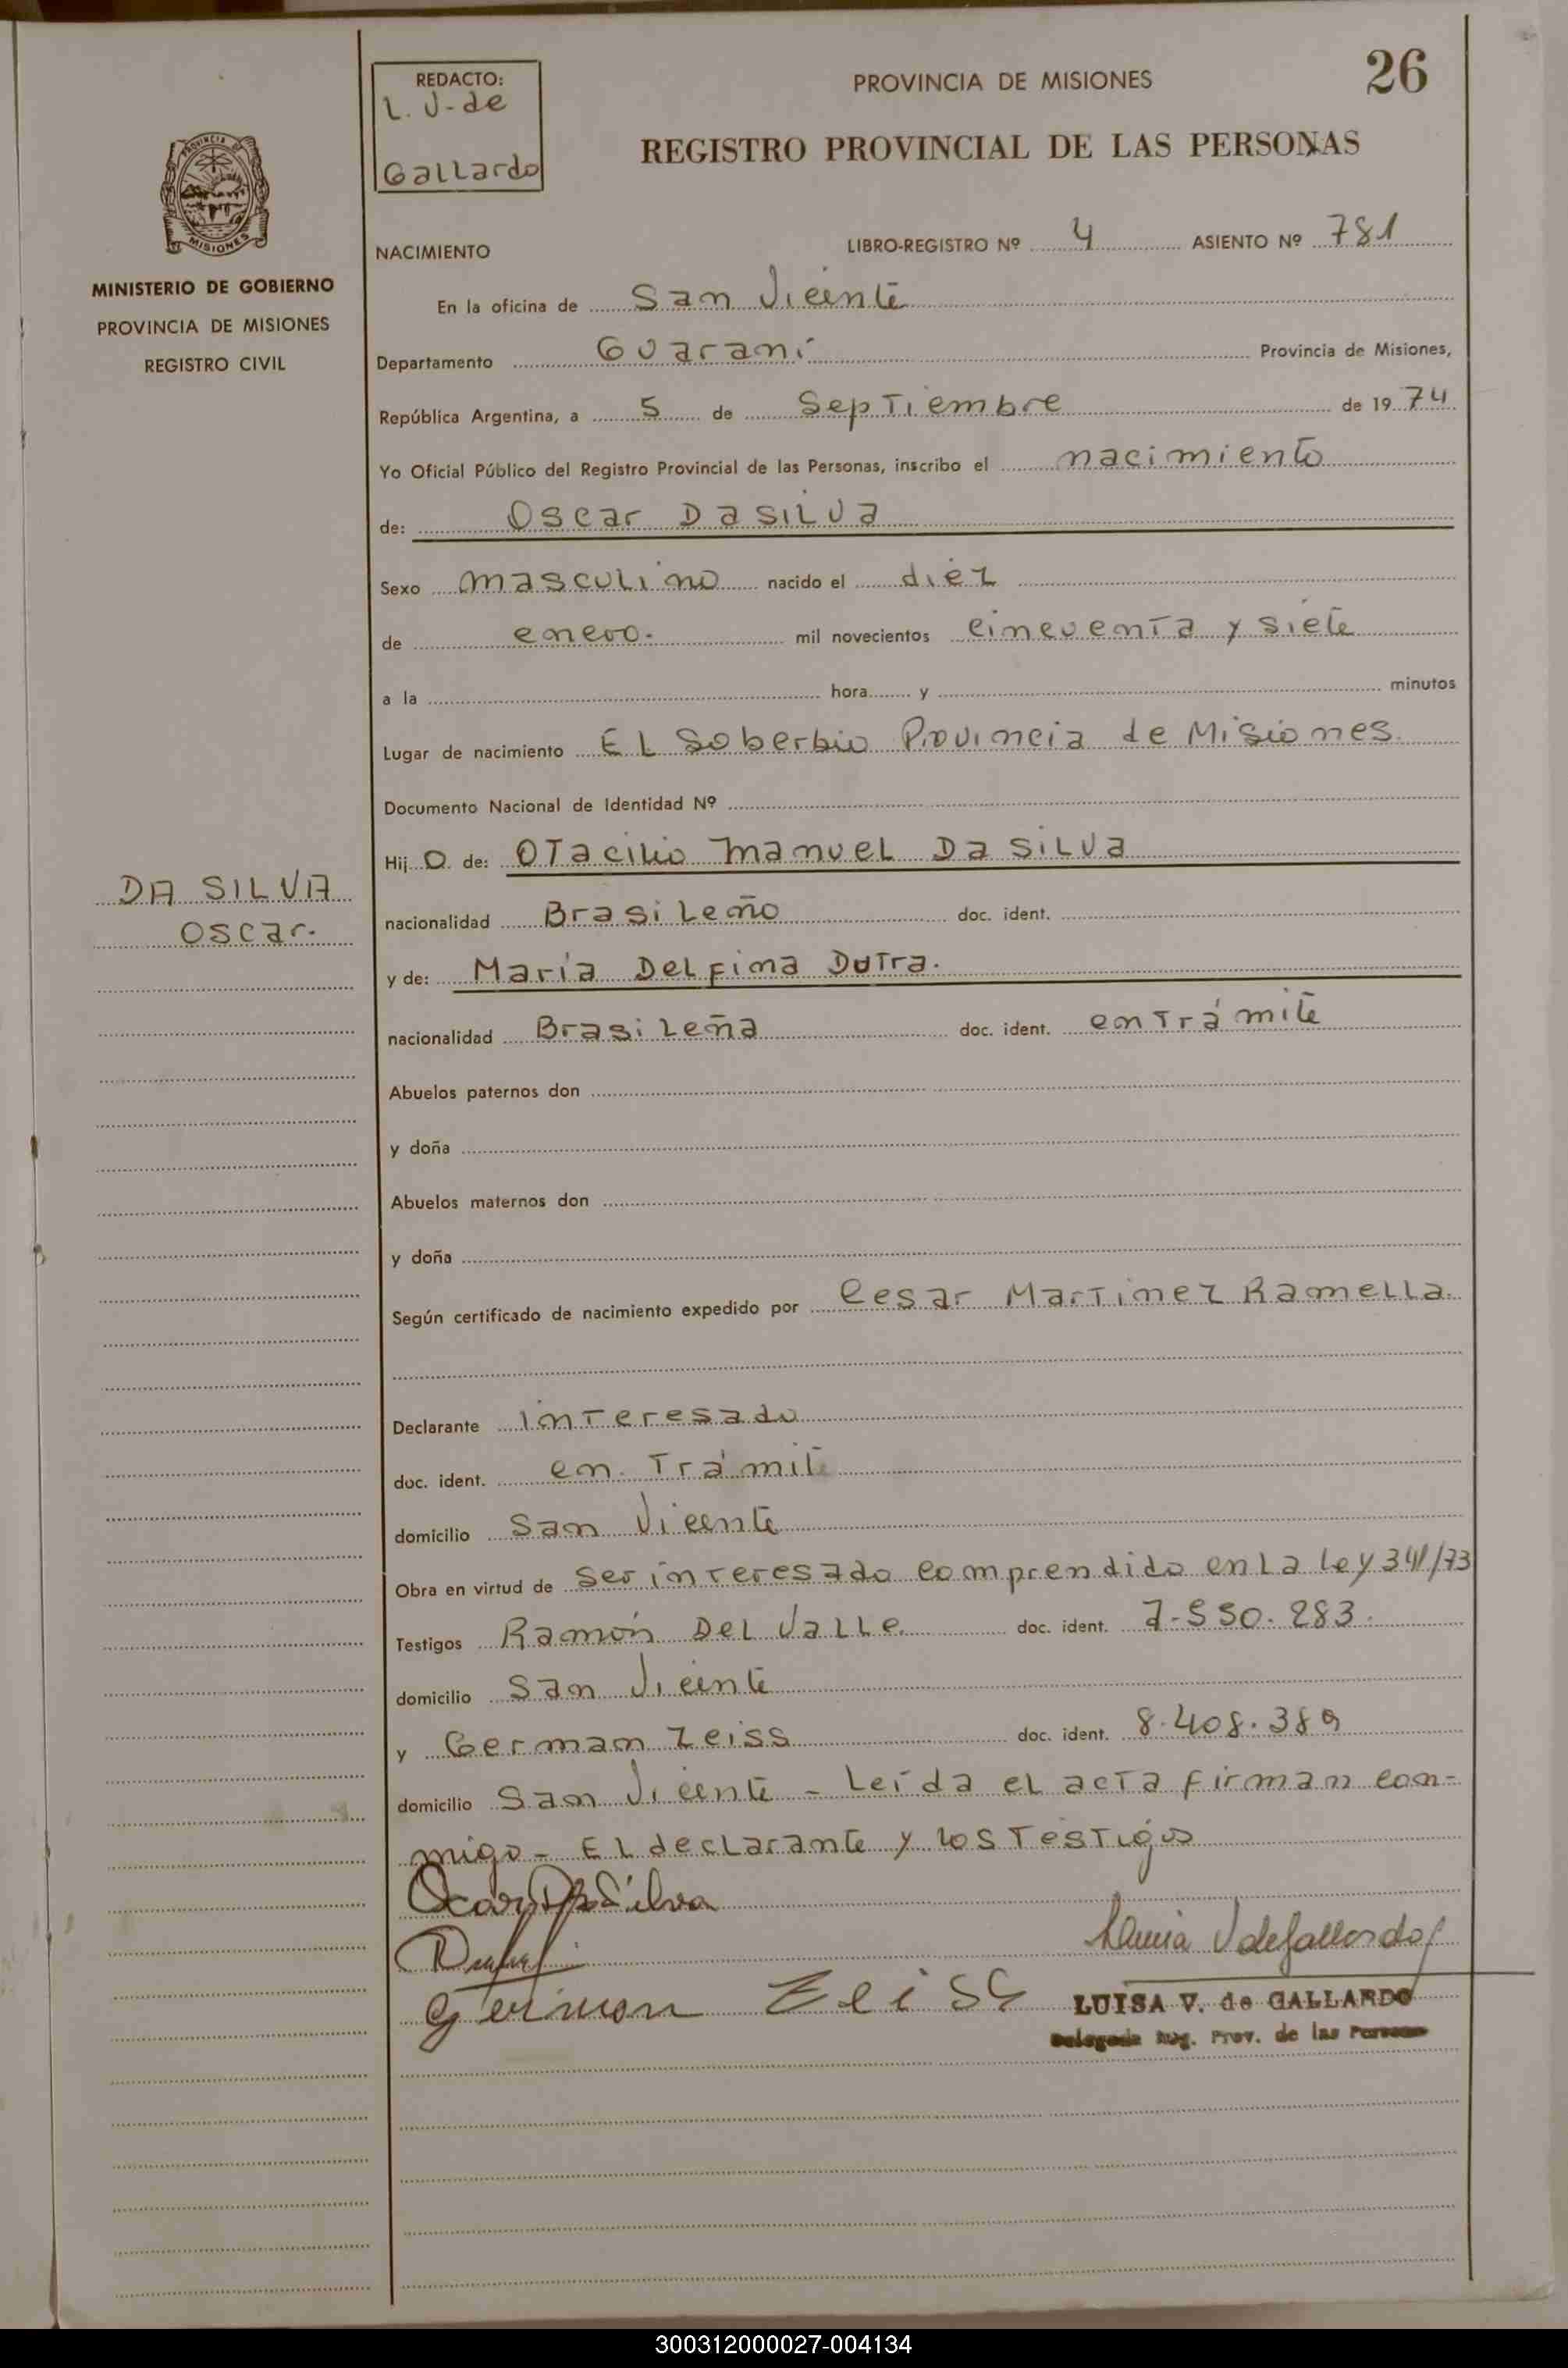 REDACTO:
L. V. de
Gallardo
PROVINCIA DE MISIONES
26
REGISTRO PROVINCIAL DE LAS PERSONAS
PROVINCIA DE MISIONES
MINISTERIO DE GOBIERNO
PROVINCIA DE MISIONES
REGISTRO CIVIL
NACIMIENTO LIBRO-REGISTRO Nº 4 ASIENTO Nº 781
En la oficina de San Vicente
Departamento Guaraní Provincia de Misiones,
República Argentina, a 5 de Septiembre de 1974
Yo Oficial Público del Registro Provincial de las Personas, inscribo el nacimiento
de: Oscar Da Silva
Sexo masculino nacido el diez
de enero. mil novecientos cincuenta y siete
a la hora y minutos
Lugar de nacimiento El Soberbio Provincia de Misiones.
Documento Nacional de Identidad Nº
Hijo de: Otacilio Manuel Da Silva
DA SILVA
Oscar.
nacionalidad Brasileño doc. ident.
y de: María Delfina Dutra.
nacionalidad Brasileña doc. ident. en trámite
Abuelos paternos don
y doña
Abuelos maternos don
y doña
Según certificado de nacimiento expedido por Cesar Martinez Ramella.
Declarante interesado
doc. ident. en trámite
domicilio San Vicente
Obra en virtud de ser interesado comprendido en la Ley 341/73
Testigos Ramón Del Valle doc. ident. 7.550.283.
domicilio San Vicente
y German Zeiss doc. ident. 8.408.389
domicilio San Vicente - Leída el acta firman con-
migo - El declarante y los testigos
Ocar Da Silva
V de Gallardo
German Zeiss
LUISA V. de GALLARDO
Delegada Reg. Prov. de las Personas
300312000027-004134